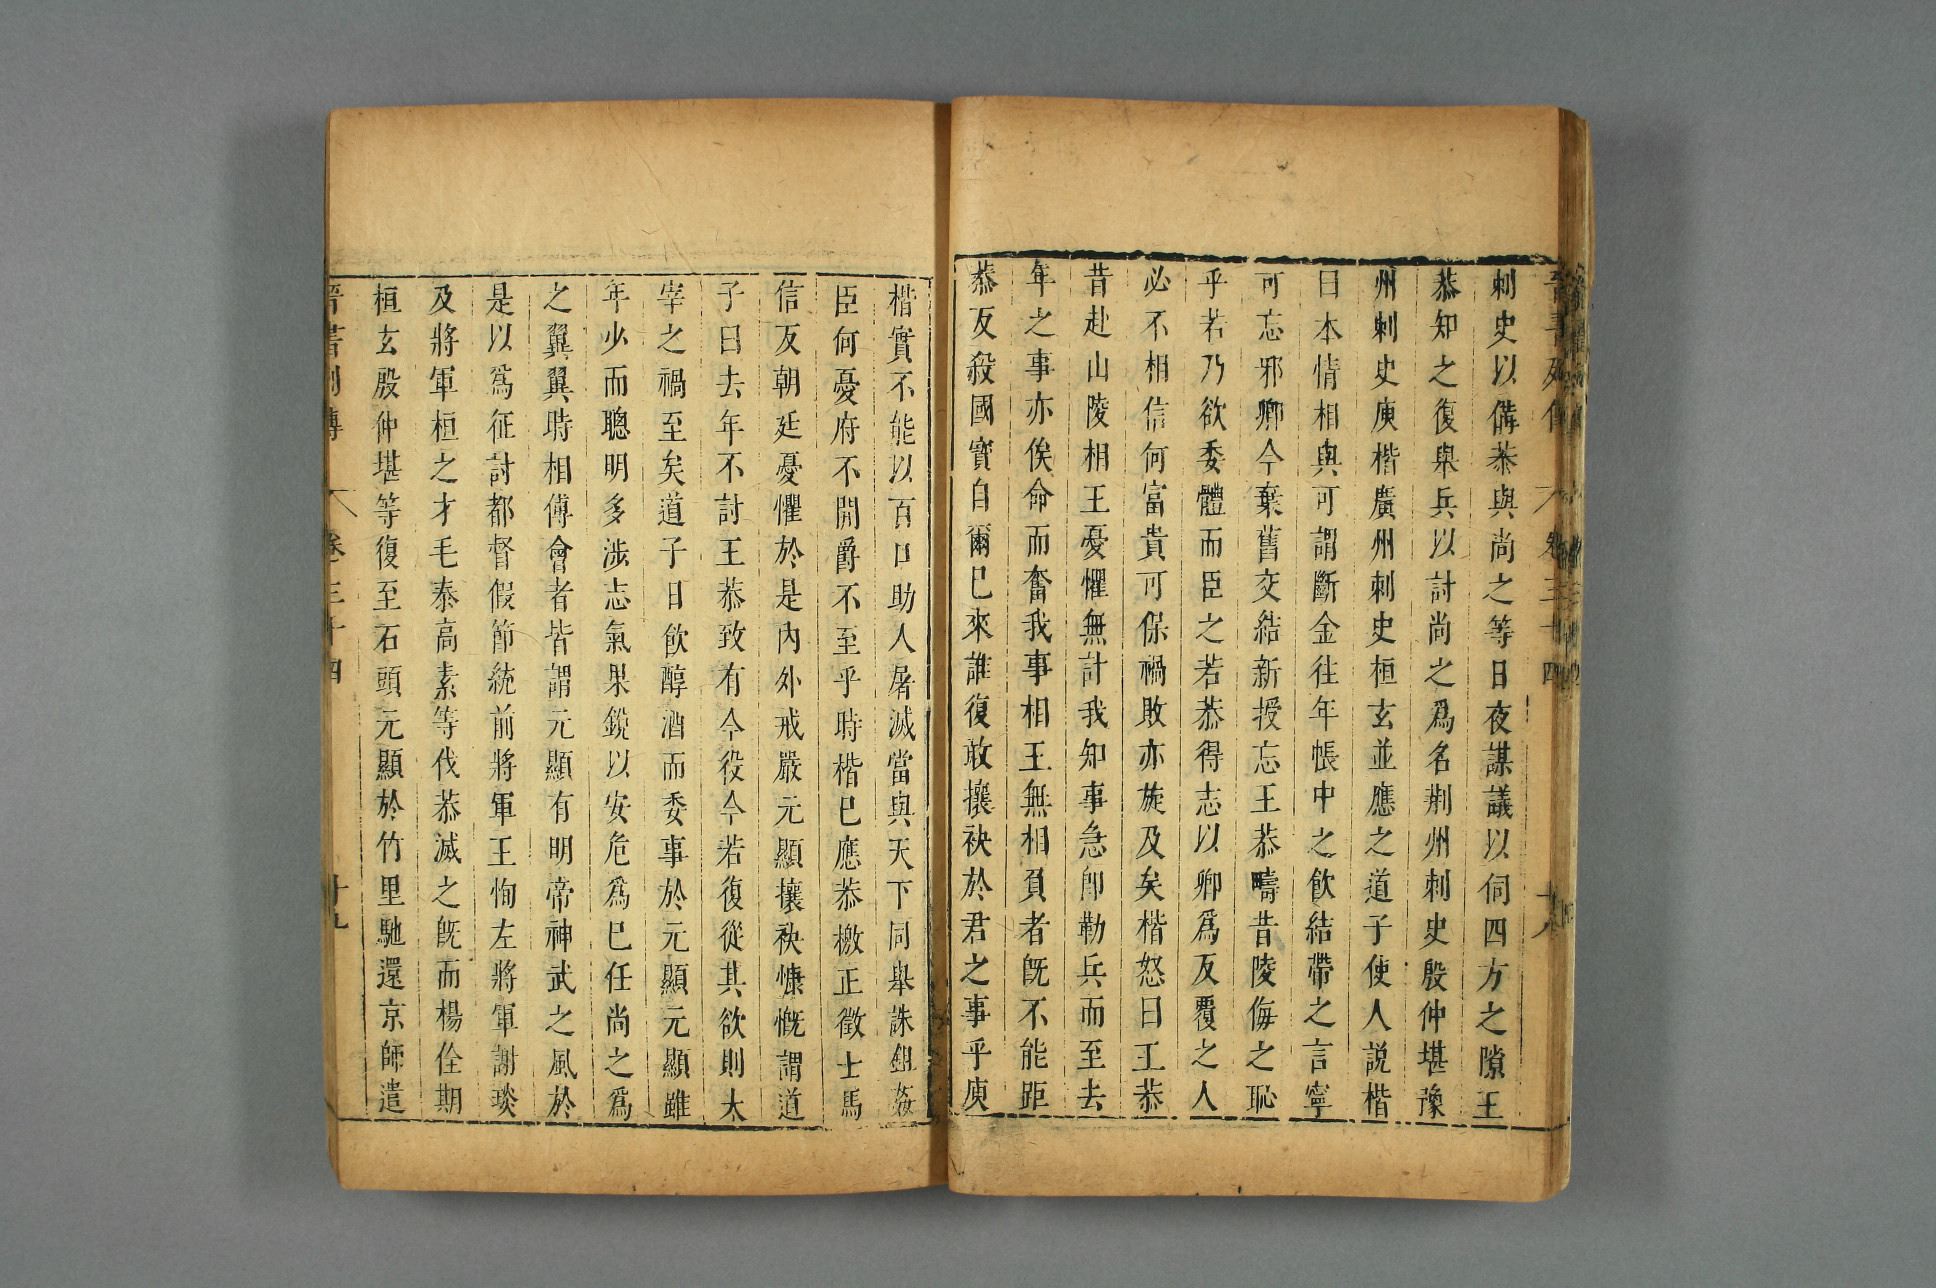 晉書列傳 卷三十四 十八
刺史以備恭與尚之等日夜謀議以伺四方之隙王
恭知之復舉兵以討尚之爲名荆州刺史殷仲堪豫
州刺史庾楷廣州刺史桓玄並應之道子使人説楷
曰本情相與可謂斷金往年帳中之飲結帶之言寧
可忘邪卿今棄舊交結新授忘王恭疇昔陵侮之恥
乎若乃欲委體而臣之若恭得志以卿爲反覆之人
必不相信何富貴可保禍敗亦旋及矣楷怒曰王恭
昔赴山陵相王憂懼無計我知事急卽勒兵而至去
年之事亦俟命而奮我事相王無相負者旣不能距
恭反殺國寳自爾已來誰復敢攘袂於君之事乎庾
楷實不能以百口助人屠滅當與天下同舉誅鉏姦
臣何憂府不開爵不至乎時楷已應恭檄正徵士馬
信反朝廷憂懼於是内外戒嚴元顯攘袂慷慨謂道
子曰去年不討王恭致有今役今若復從其欲則太
宰之禍至矣道子日飲醇酒而委事於元顯元顯雖
年少而聰明多涉志氣果銳以安危爲已任尚之爲
之翼翼時相傅會者皆謂元顯有明帝神武之風於
是以爲征討都督假節統前將軍王恂左將軍謝琰
及將軍桓之才毛泰高素等伐恭滅之旣而楊佺期
桓玄殷仲堪等復至石頭元顯於竹里馳還京師遣
晉書列傳 卷三十四 十九